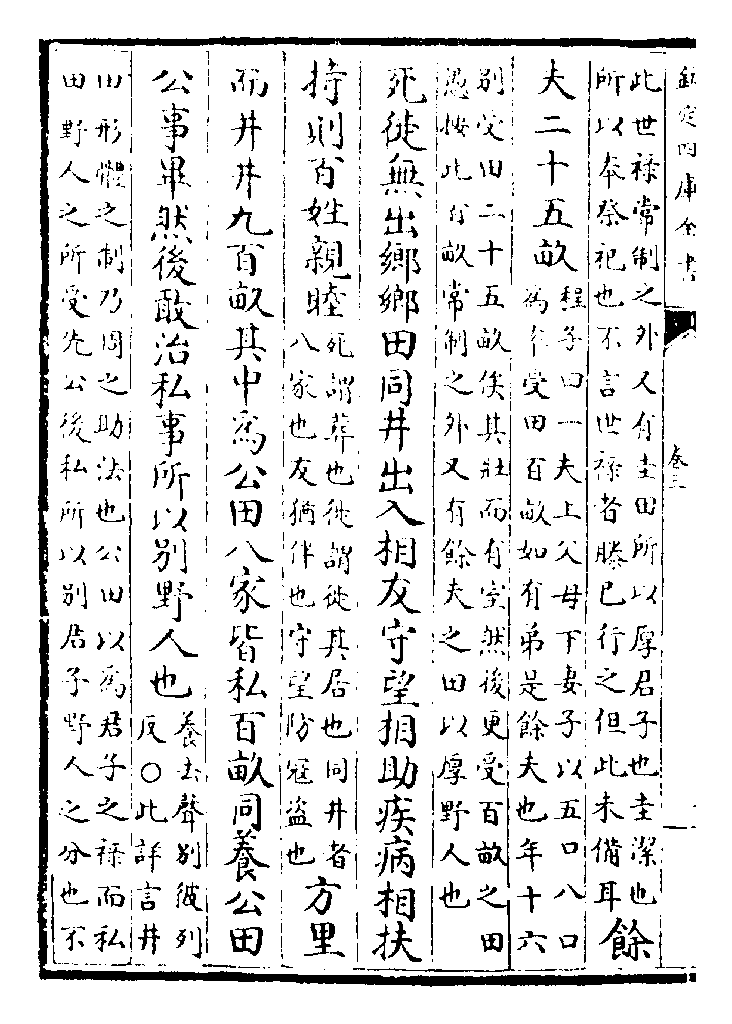 欽定四庫全書
卷三
此世祿常制之外又有圭田所以厚君子也圭潔也
所以奉祭祀也不言世祿者滕已行之但此未備耳
餘
夫二十五畝
程子曰一夫上父母下妻子以五口八口
為率受田百畝如有弟是餘夫也年十六
別受田二十五畝俟其壯而有室然後更受百畝之田
愚按此百畝常制之外又有餘夫之田以厚野人也
死徙無出鄉鄉田同井出入相友守望相助疾病相扶
持則百姓親睦
死謂葬也徙謂徙其居也同井者
八家也友猶伴也守望防寇盜也
方里
而井井九百畝其中為公田八家皆私百畝同養公田
公事畢然後敢治私事所以別野人也
養去聲別彼列
反○此詳言井
田形體之制乃周之助法也公田以為君子之祿而私
田野人之所受先公後私所以別君子野人之分也不